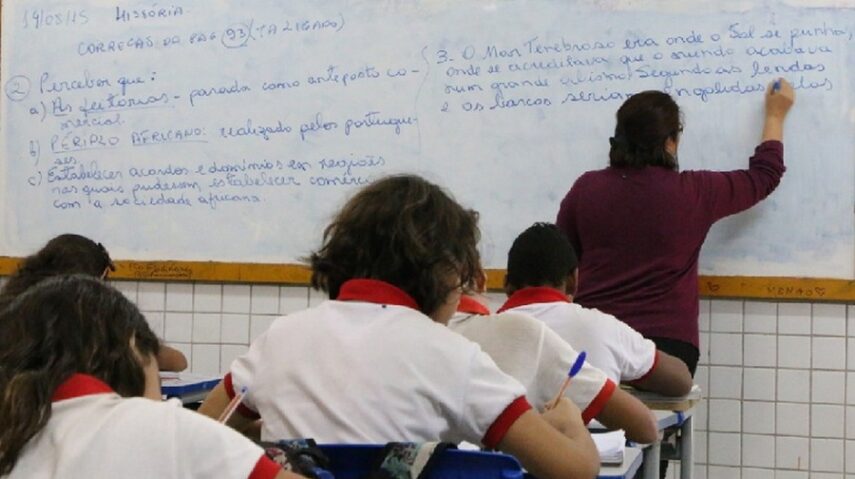 19/08/15 HISSÓRIA.
CORREÇAS DO PAG 93 (TALIGADO)
2 Perceber que:
a) As feitorias - parada como anteposto co-
mercial.
b) PÉRIPLO AFRICANO: realizado pelos portugue-
ses.
c) Estabelecer acordos e domínios em regiões
nas quais pudessem estabelecer comérci
com a sociedade africana.
3- O Mar Tenebroso era onde o Sol se punha,
onde se acreditava que o mundo acabava
num grande abismo. Segundo as lendas
e os barcos seriam engolidos pelos